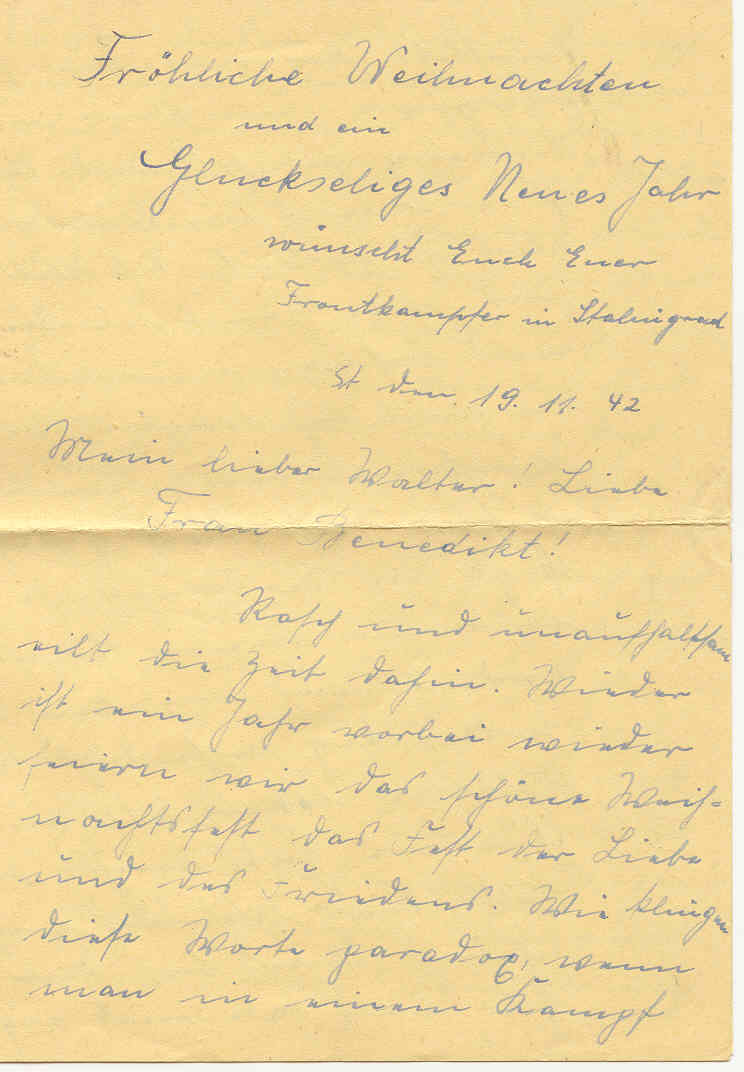 Fröhliche Weihnachten
und ein
Glückseliges Neues Jahr
wünscht Euch Euer
Frontkämpfer in Stalingrad
St den 19. 11. 42
Mein lieber Walter! Liebe
Frau Benedikt!
Rasch und unaufhaltsam
eilt die Zeit dahin. Wieder
ist ein Jahr vorbei wieder
feiern wir das schöne Weih=
nachtsfest das Fest der Liebe
und des Friedens. Wie klingen
diese Worte paradox, wenn
man in einem Kampf